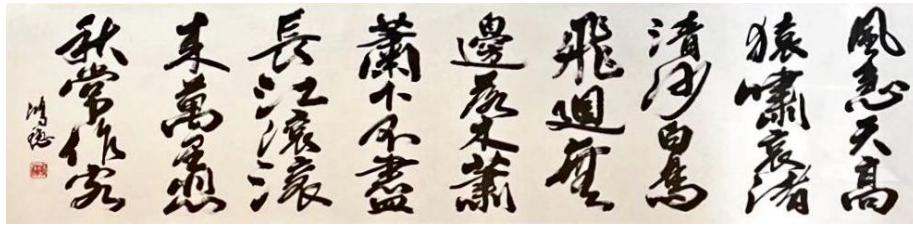 風急天高
猿嘯哀渚
清沙白鳥
飛迴無
邊落木蕭
蕭下不盡
長江滾滾
来萬里悲
秋常作客
鴻